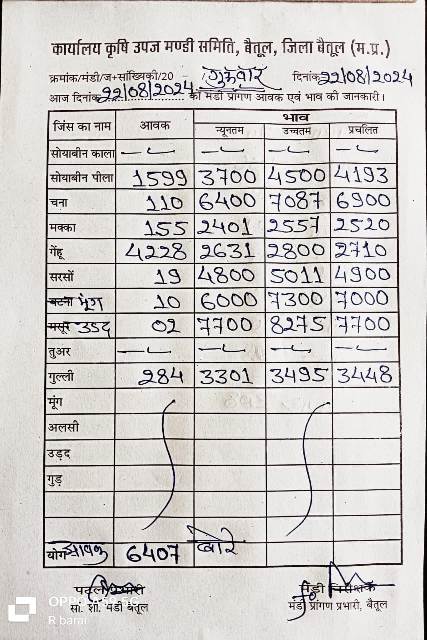 कार्यालय कृषि उपज मण्डी समिति, बैतूल, जिला बैतूल (म.प्र.)
क्रमांक/मंडी/ज+सांख्यिकी/20 - गुरूवार दिनांक 22/08/2024
आज दिनांक 22/08/2024 की मंडी प्रांगण आवक एवं भाव की जानकारी।
जिंस का नाम आवक भाव
न्यूनतम उच्चतम प्रचलित
सोयाबीन काला — — — —
सोयाबीन पीला 1599 3700 4500 4193
चना 110 6400 7087 6900
मक्का 155 2401 2557 2520
गेंहू 4228 2631 2800 2710
सरसों 19 4800 5011 4900
बटना मूंग 10 6000 7300 7000
मसूर उडद 02 7700 8275 7700
तुअर — — — —
गुल्ली 284 3301 3495 3448
मूंग
अलसी
उड़द
गुड़
योग आवक 6407 बोरे
मंडी निरीक्षक
सा. शा. मंडी बैतूल मंडी प्रांगण प्रभारी, बैतूल
OPPO
R barai